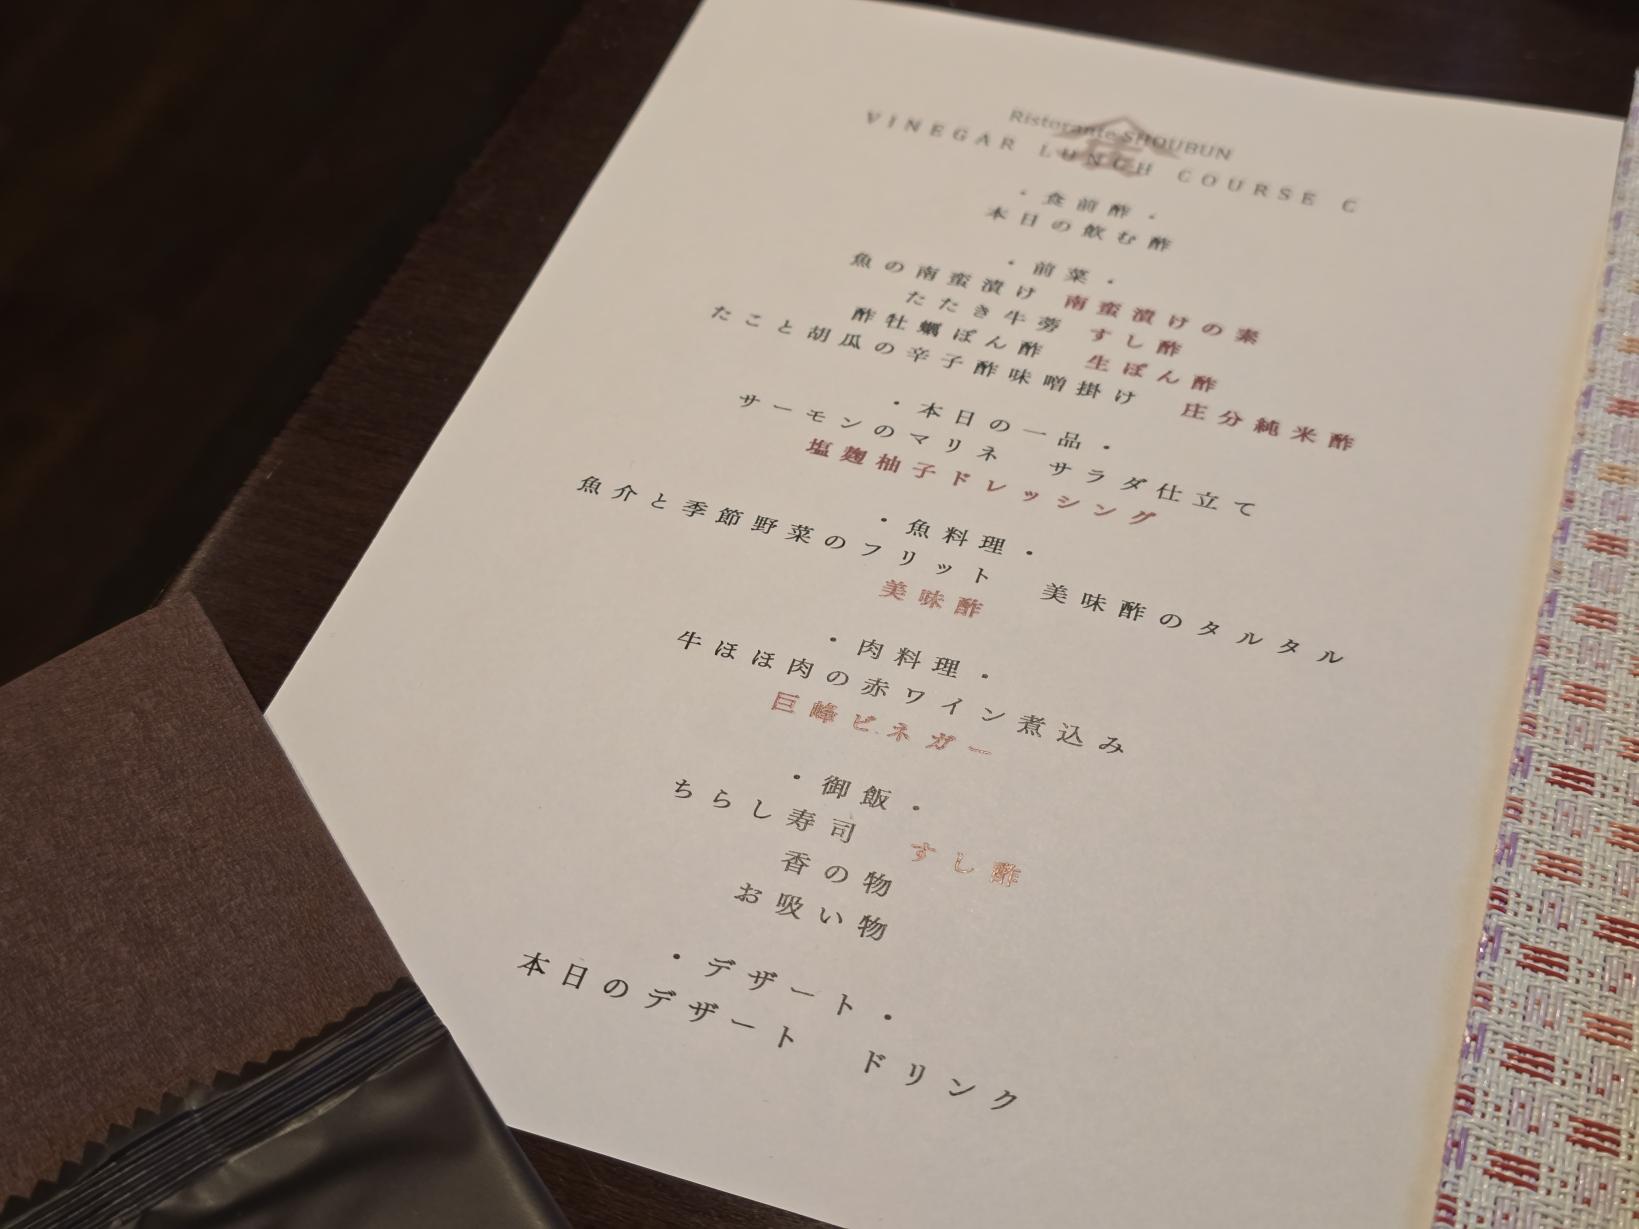 Ristorante SHOUBUN
VINEGAR LUNCH COURSE C
・食前酢・
本日の飲む酢
・前菜・
魚の南蛮漬け 南蛮漬けの素
たたき牛蒡 すし酢
酢牡蠣ぽん酢 生ぽん酢
たこと胡瓜の辛子酢味噌掛け 庄分純米酢
・本日の一品・
サーモンのマリネ サラダ仕立て
塩麹柚子ドレッシング
・魚料理・
魚介と季節野菜のフリット 美味酢のタルタル
美味酢
・肉料理・
牛ほほ肉の赤ワイン煮込み
巨峰ビネガー
・御飯・
ちらし寿司 すし酢
香の物
お吸い物
・デザート・
本日のデザート ドリンク